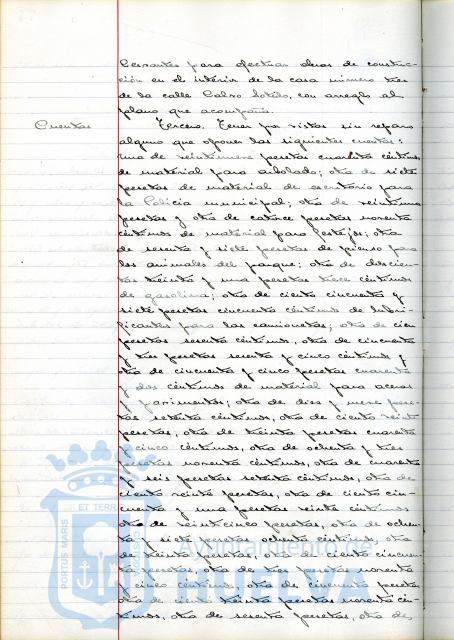 Cervantes para efectuar obras de construc-
ción en el interior de la casa número tres
de la calle Calvo Sotelo, con arreglo al
plano que acompaña.
Cuentas
Tercero. Tener por vistas sin reparo
alguno que oponer las siguientes cuentas:
una de veintinueve pesetas cuarenta céntimos
de material para arbolado; otra de siete
pesetas de material de escritorio para
la Policía municipal; otra de veintiuna
pesetas y otra de catorce pesetas noventa
céntimos de material para festejos; otra
de sesenta y siete pesetas de pienso para
los animales del parque; otra de doscien-
tas treinta y una pesetas trece céntimos
de gasolina; otra de ciento cincuenta y
siete pesetas cincuenta céntimos de lubri-
ficantes para las camionetas; otra de cien
pesetas sesenta céntimos, otra de cincuenta
y tres pesetas sesenta y cinco céntimos y
otra de cincuenta y cinco pesetas cuarenta
y dos céntimos de material para aceras
y pavimentos; otra de diez y nueve pese-
tas setenta céntimos, otra de ciento veinte
pesetas, otra de treinta pesetas cuarenta
y cinco céntimos, otra de ochenta y tres
pesetas noventa céntimos, otra de cuarenta
y seis pesetas setenta céntimos, otra de
ciento veinte pesetas, otra de ciento cin-
cuenta y una pesetas veinte céntimos
otra de veinticinco pesetas, otra de ochen-
ta y siete pesetas ochenta céntimos, otra
de treinta pesetas, otra de ciento cincuen-
ta pesetas, otra de tres pesetas noventa
y cinco céntimos, otra de cincuenta pesetas
otra de ciento treinta pesetas noventa cén-
timos, otra de sesenta pesetas, otra de
PORTUS MARIS
ET TERRA
Ayuntamiento de
HUELVA